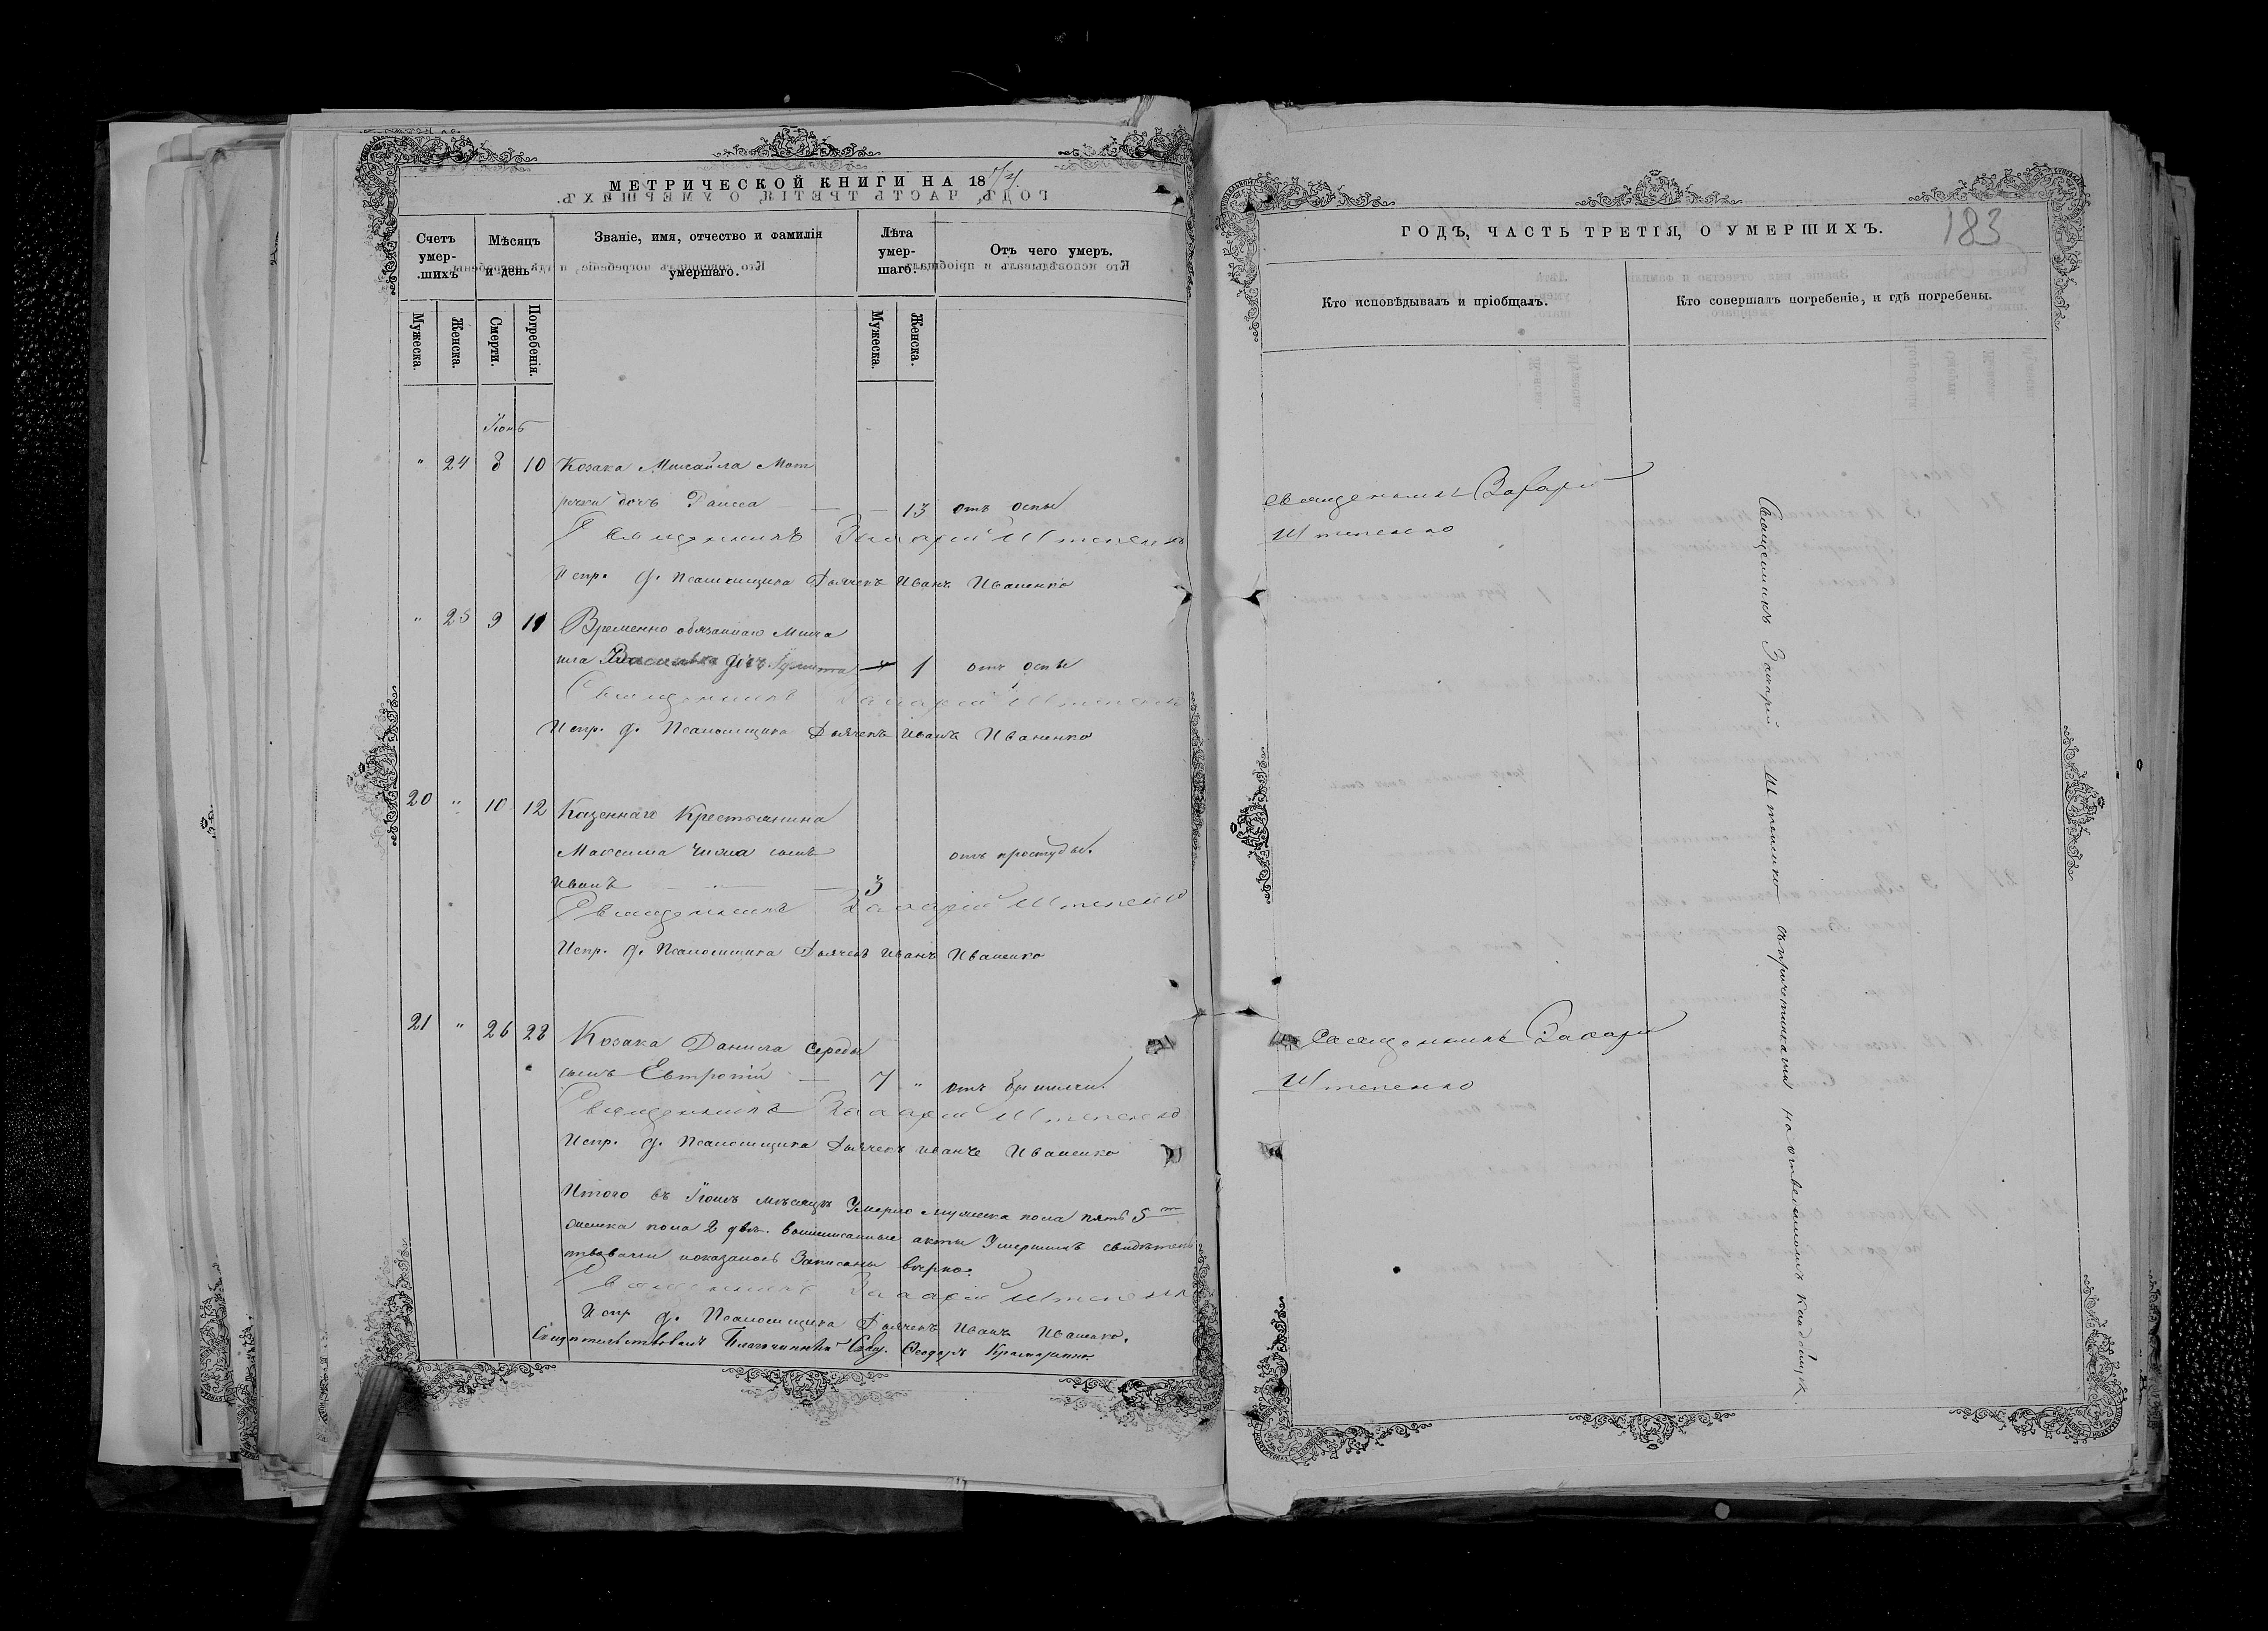 МЕТРИЧЕСКОЙ КНИГИ НА 18
Счетъ умер-шихъ.
Мѣсяцъ и день
Званіе, имя, отчество и фамилія умершаго.
Лѣта умер-шаго.
Отъ чего умеръ.
Мужеска.
Женска.
Смерти.
Погребенія.
Мужеска.
Женска.
Іюнь
" 24 8 10 Козака Михаила Мот
дочь Раисса 13 отъ оспы
Священникъ Захарій Штепенко
Испр. д. Псаломщика Дьячекъ Иванъ Иваненко
" 25 9 11 Временно обязаннаго Миха
ила дочь 1 отъ оспы
Священникъ Захарій Штепенко
Испр. д. Псаломщика Дьячекъ Иванъ Иваненко
20 " 10 12 Казеннаго Крестьянина
Максима сынъ отъ простуды.
Иванъ 3
Священникъ Захарій Штепенко
Испр. д. Псаломщика Дьячекъ Иванъ Иваненко
21 " 26 28 Козака Данила Середы
сынъ Евтропій 7 " отъ
Священникъ Захарій Штепенко
Испр. д. Псаломщика Дьячекъ Иванъ Иваненко
Итого въ Іюнѣ мѣсяцѣ Умерло мужеска пола пять 5
женска пола 2 двѣ. акты Умершихъ свидѣтель
ствовали Записаны вѣрно.
Священникъ Захарій Штепенко
Испр д. Псаломщика Дьячекъ Иванъ Иваненко.
Свидѣтельствовалъ Благочинный Свящ. Ѳеодоръ
ГОДЪ, ЧАСТЬ ТРЕТІЯ, О УМЕРШИХЪ.
183
Кто исповѣдывалъ и пріобщалъ.
Кто совершалъ погребеніе, и гдѣ погребены.
Священникъ Захарій
Штепенко
Священникъ Захарій
Штепенко
Священникъ Захарій Штепенко съ причетниками на отведенномъ кладбищѣ